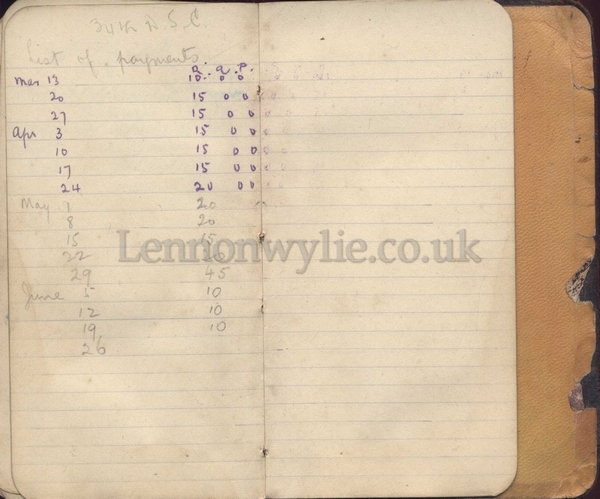 34th D.S.C.
List of payments
a. a. p.
Mar 13 10. 0 0
20 15 0 0
27 15 0 0
Apr 3 15 0 0
10 15 0 0
17 15 0 0
24 20 0 0
May 1 20
8 20
15 15
22
29 45
June 5 10
12 10
19 10
26
Lennonwylie.co.uk